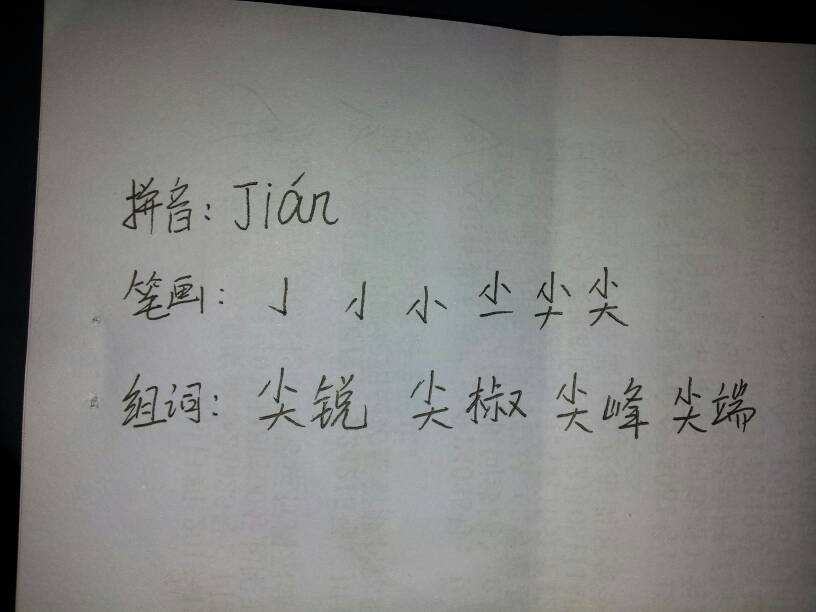 拼音：Jián
笔画：亅 小 小 尖 尖
组词：尖锐 尖椒 尖峰 尖端